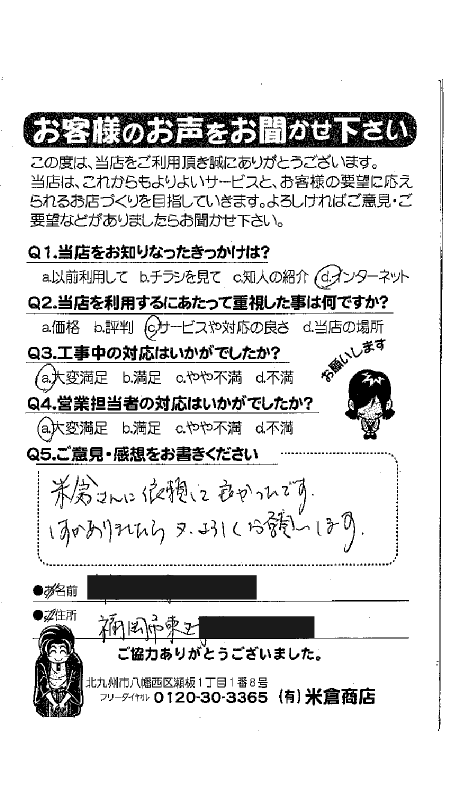 お客様のお声をお聞かせ下さい
この度は、当店をご利用頂き誠にありがとうございます。
当店は、これからもよりよいサービスと、お客様の要望に応え
られるお店づくりを目指していきます。よろしければご意見・ご
要望などがありましたらお聞かせ下さい。
Q1.当店をお知りなったきっかけは?
a.以前利用して b.チラシを見て c.知人の紹介 d.インターネット
Q2.当店を利用するにあたって重視した事は何ですか?
a.価格 b.評判 c.サービスや対応の良さ d.当店の場所
Q3.工事中の対応はいかがでしたか?
お願いします
a.大変満足 b.満足 c.やや不満 d.不満
Q4.営業担当者の対応はいかがでしたか?
a.大変満足 b.満足 c.やや不満 d.不満
Q5.ご意見・感想をお書きください
米倉さんに依頼して良かったです。
ありましたら又、よろしくお願いします。
●お名前
●ご住所
福岡市東区
ご協力ありがとうございました。
北九州市八幡西区瀬板1丁目1番8号
フリーダイヤル 0120-30-3365 (有)米倉商店